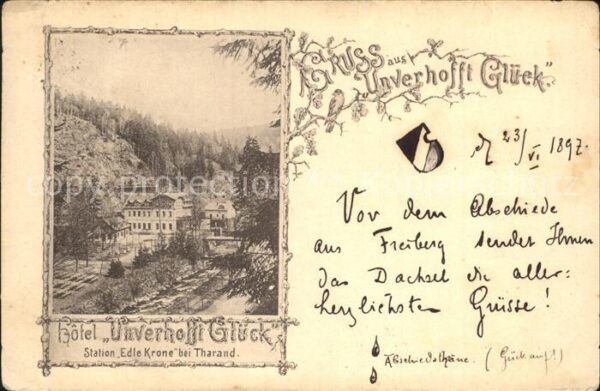 Gruss aus
"Unverhofft Glück".
d. 23/VI. 1897.
Vor dem Abschiede
aus Freiberg sendet Ihnen
das Dachsel die aller=
herzlichsten Grüsse!
Abschiedsthräne. (Glück auf!)
Hôtel "Unverhofft Glück"
Station "Edle Krone" bei Tharand.
copyright protection